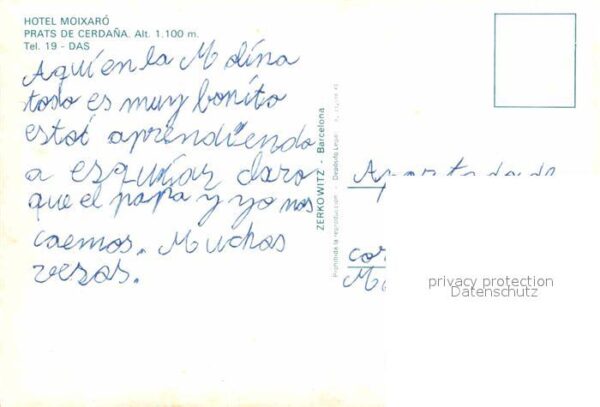 HOTEL MOIXARÓ
PRATS DE CERDAÑA. Alt. 1.100 m.
Tel. 19 - DAS
Aquí en la Molina
todo es muy bonito
estoi aprendiendo
a esquiar claro
que el papa y yo nos
caemos. Muchas
vezas.
ZERKOWITZ - Barcelona
Prohibida la reproducción - Depósito Legal
privacy protection
Datenschutz